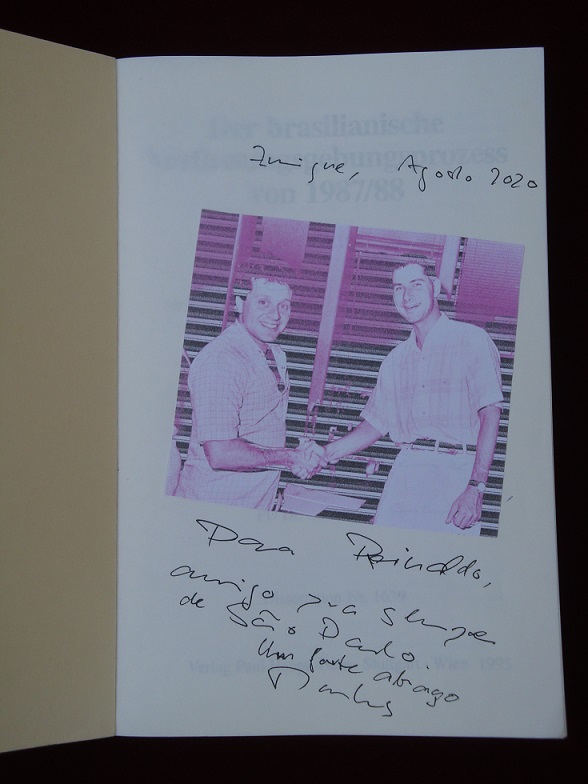 Der brasilianische
Verfassungsgebungsprozess
von 1987/88
Zurique, Agosto 2020
Para Reinaldo,
amigo pra sempre
de São Paulo
Um forte abraço
Verlag Paul Wien 1995